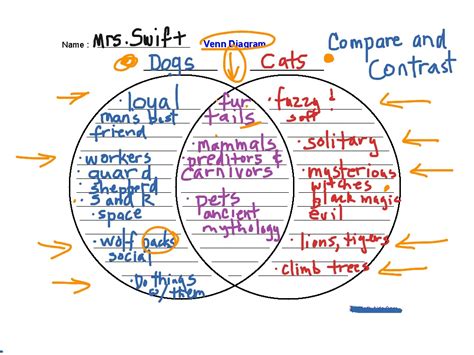 Name : Mrs. Swift
Venn Diagram
Compare and
Contrast
Dogs
Cats
· loyal
mans best
friend
· workers
guard
shepherd
S and R
· space
· wolf packs
social
· Do things
w/them
fur
tails
· mammals
preditors &
carnivors
· pets
ancient
mythology
· fuzzy!
soft
· solitary
· mysterious
witches
black magic
evil
· lions, tigers
· climb trees